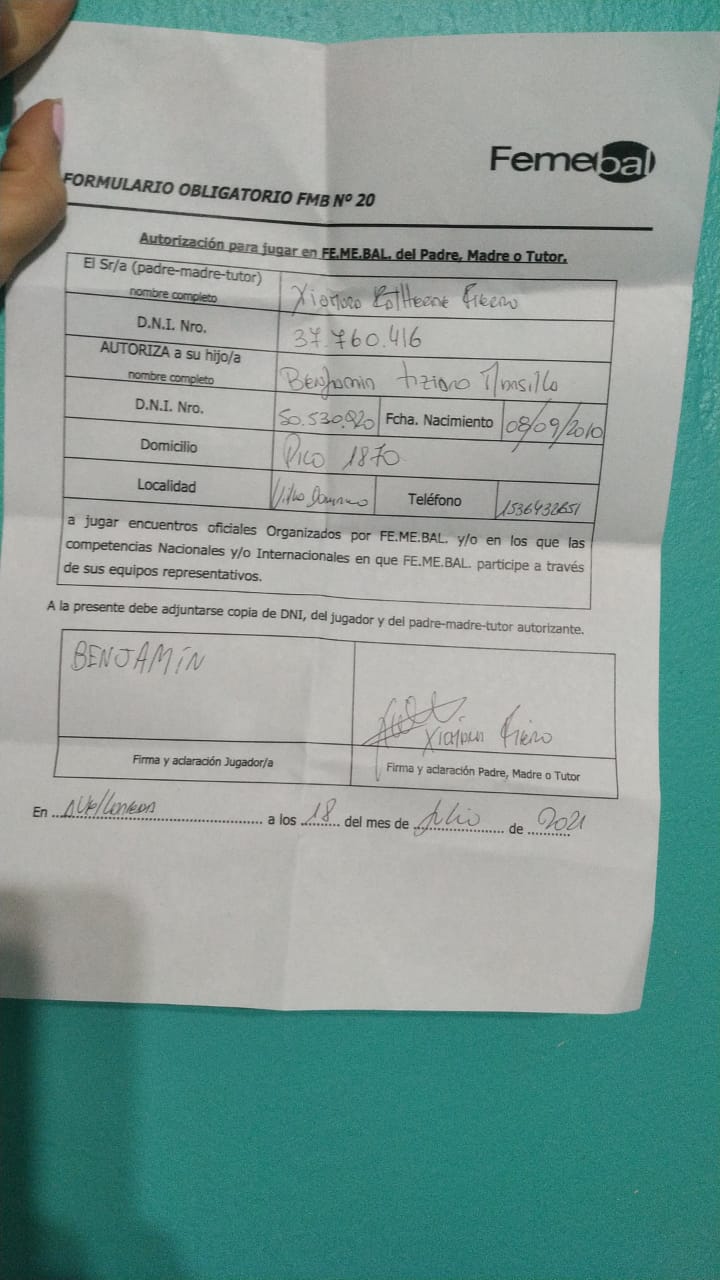 Femebal
FORMULARIO OBLIGATORIO FMB Nº 20
Autorización para jugar en FE.ME.BAL. del Padre, Madre o Tutor.
El Sr/a (padre-madre-tutor)
nombre completo
D.N.I. Nro. 37.760.416
AUTORIZA a su hijo/a
nombre completo Benjamin tiziano
D.N.I. Nro. 50.530.920 Fcha. Nacimiento 08/09/2010
Domicilio Pico 1870
Localidad Villa Dominico Teléfono
a jugar encuentros oficiales Organizados por FE.ME.BAL. y/o en los que las
competencias Nacionales y/o Internacionales en que FE.ME.BAL. participe a través
de sus equipos representativos.
A la presente debe adjuntarse copia de DNI, del jugador y del padre-madre-tutor autorizante.
BENJAMíN
Firma y aclaración Jugador/a Firma y aclaración Padre, Madre o Tutor
En Avellaneda a los 18 del mes de Julio de 2021